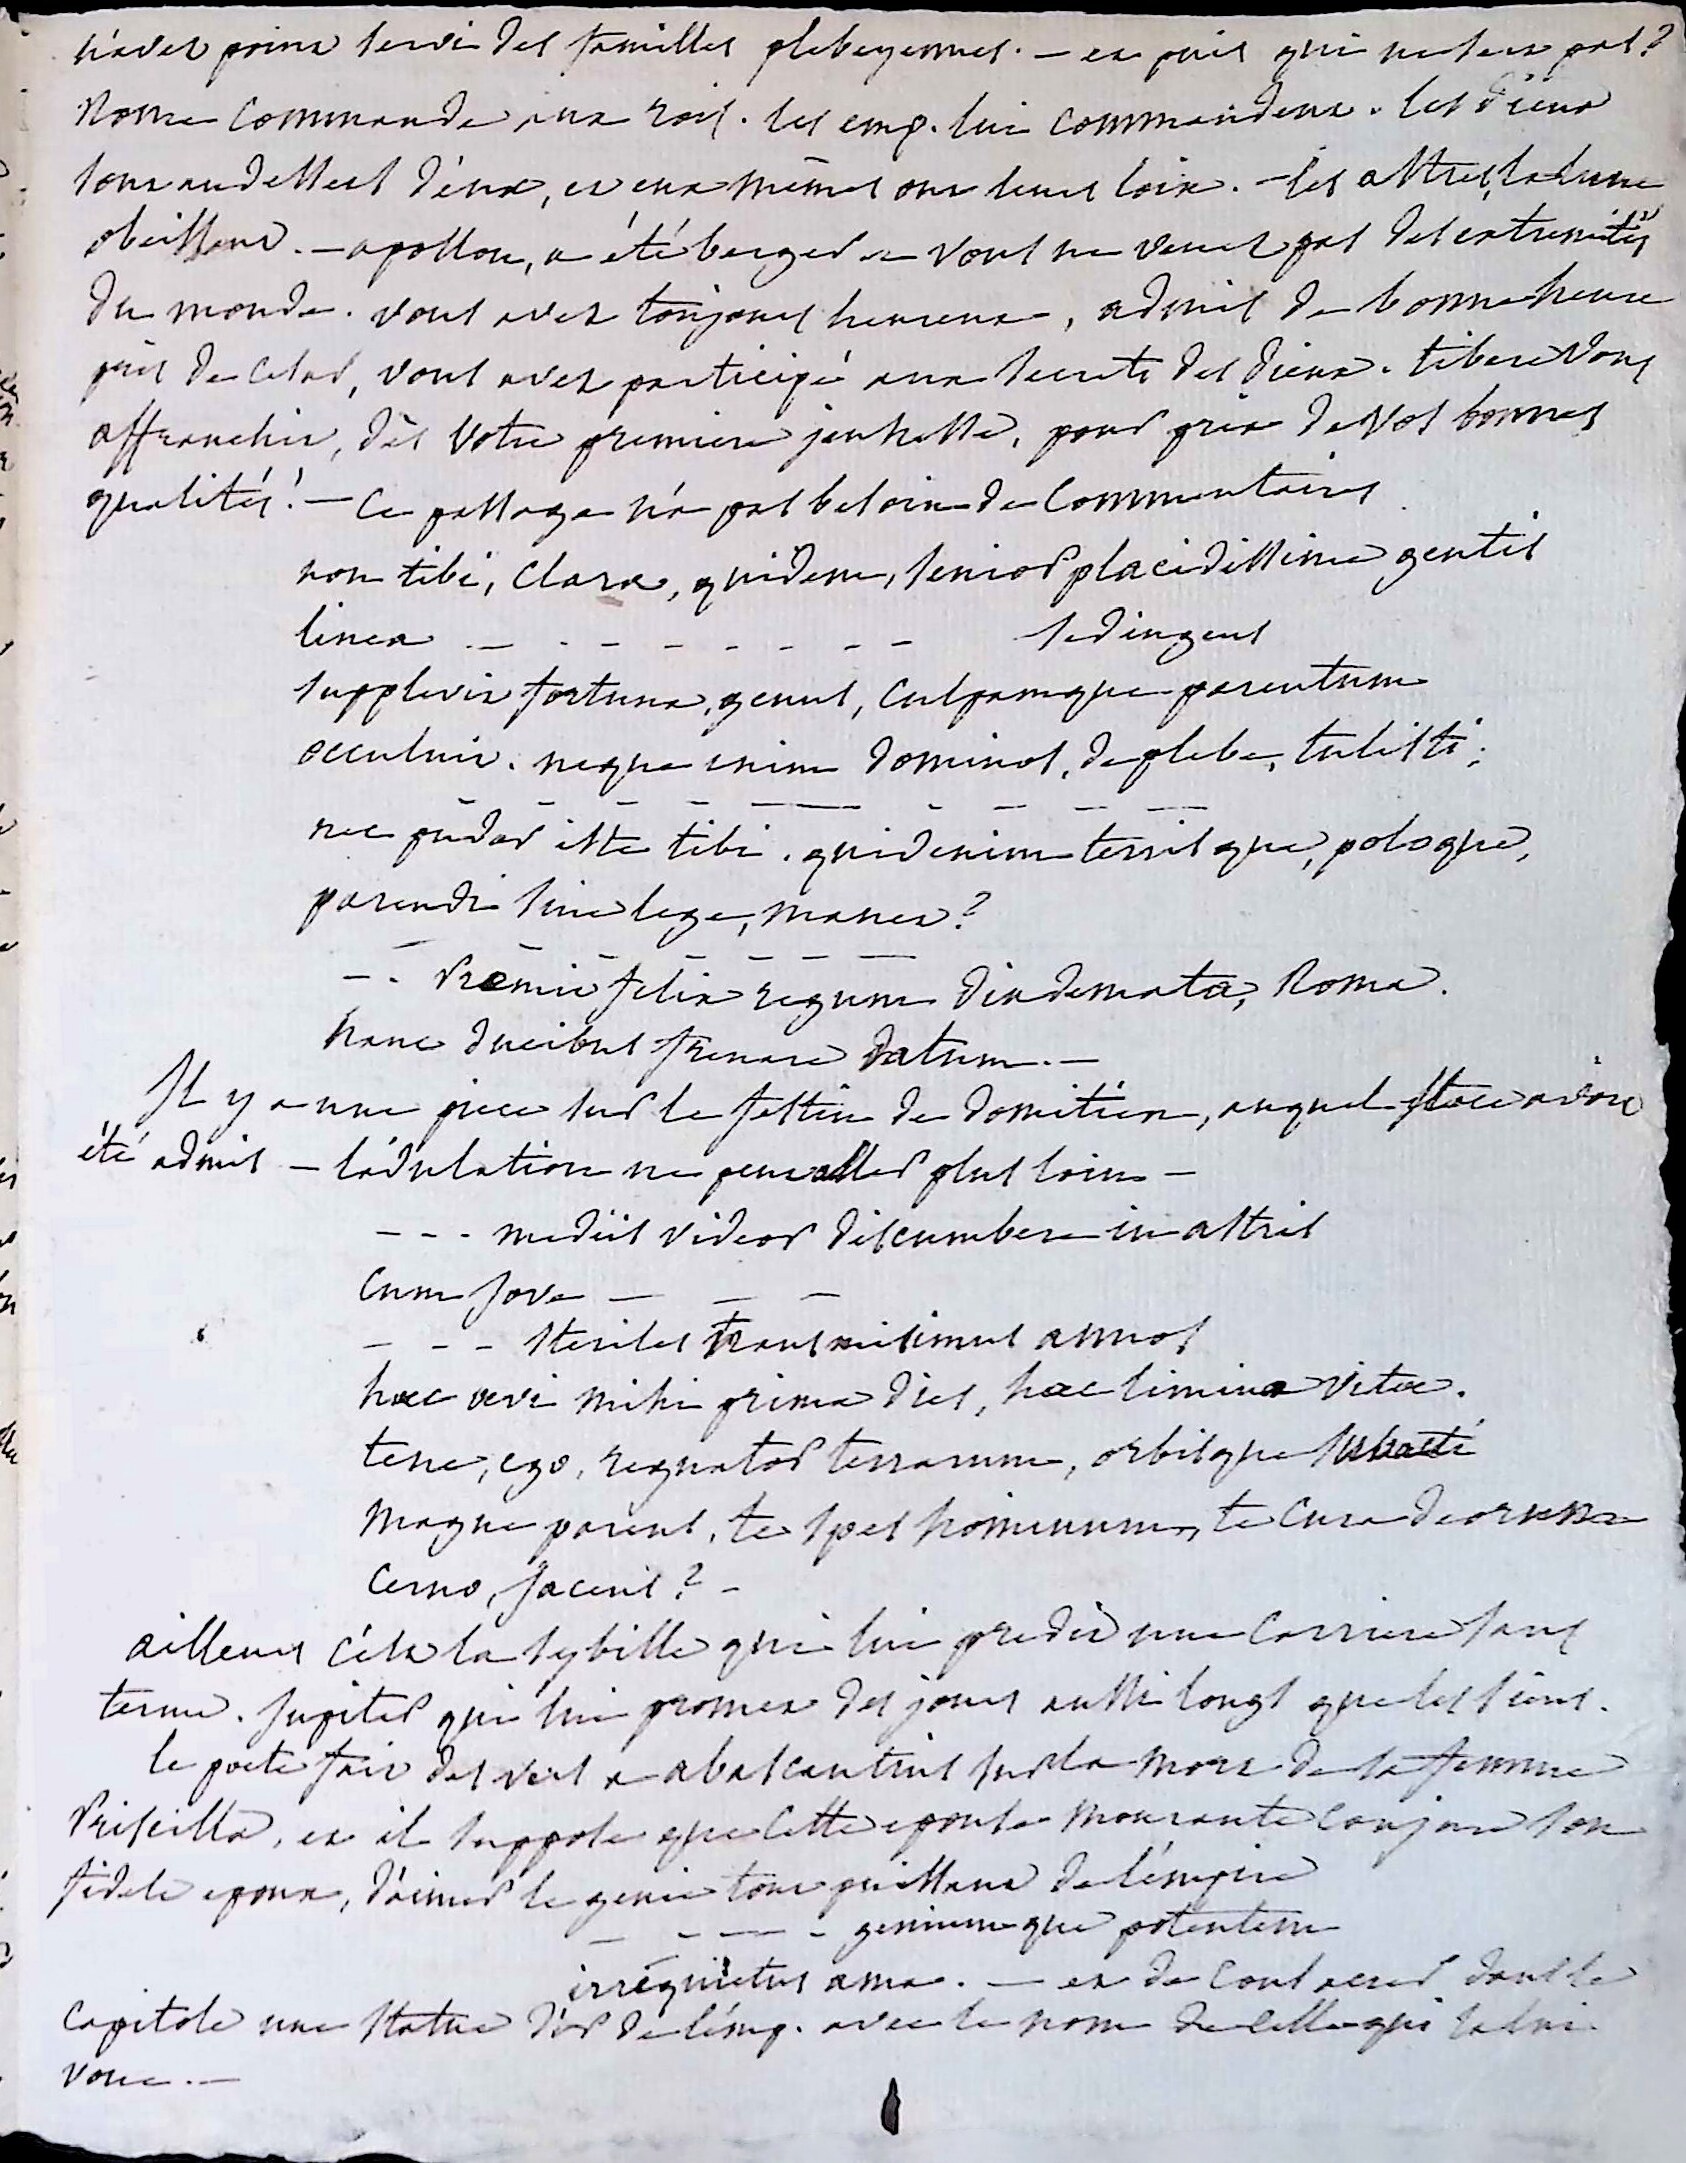 n'avez point servi des familles plebeyennes. — et puis qui ne sert pas?
Rome commande aux rois. les emp. lui commandent. les dieux
sont au dessus d'eux, et eux mêmes ont leurs loix. — les astres, la lune
obeissent. — apollon, a été berger — vous ne venez pas des extremités
du monde. vous avez toujours heureux, admis de bonne heure
près de Cesar, vous avez participé aux secrets des dieux. tibere vous
affranchit, dès votre premiere jeunesse, pour prix de vos bonnes
qualités! — Ce passage n'a pas besoin de Commentaires
non tibi, Clara, quidem, senior placidissime gentis
linea — - - - - - - - sed ingens
supplevit fortuna, genus, culpamque parentum
occuluit. neque enim dominos, de plebe, tulisti;
- - - - — - - - —
nec pudor iste tibi. quid enim terrisque, poloque,
parendi sine lege, manet?
- - - - - - —
- - Premit felix regum diademata, Roma.
hanc ducibus frenare datum. —
Il y a une piece sur le festin de domitien, auquel stace avoit
été admis — l'adulation ne peut aller plus loin —
- - - mediis videor discumbere in astris
Cum Jove — — —
- - - steriles transmisimus annos
haec aevi mihi prima dies, haec limina vitae.
tene, ego, regnator terrarum, orbisque subacti
magne parens, te spes hominum, te cura deorum
Cerno, jacens? -
ailleurs c'est la sybille qui lui predit une carriere sans
terme. Jupiter qui lui promet des jours aussi longs que les siens.
le poete fait des vers a abascantius sur la mort de sa femme
Priscilla, et il suppose que cette epouse mourante conjure son
fidele epoux, d'aimer le genie tout puissant de l'empire
- - — - geniumque potentem
irrequietus ama. — et de consacrer dans le
Capitole une statue d'or de l'emp. avec le nom de celle qui la lui
voue. —